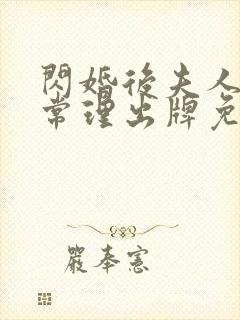 閃婚後夫人
常理出牌免
嚴奉憲